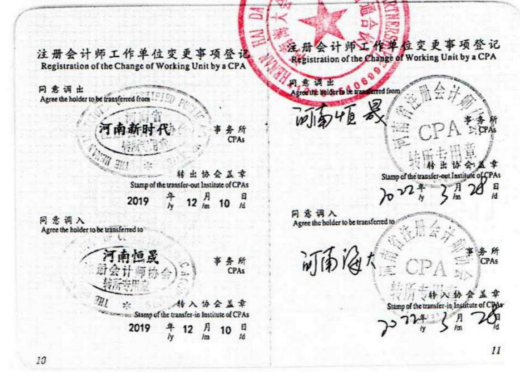 注册会计师工作单位变更事项登记
Registration of the Change of Working Unit by a CPA
同意调出
Agree the holder to be transferred from
河南新时代
事务所
CPAs
转所专用章
转出协会盖章
Stamp of the transfer-out Institute of CPAs
2019 年 12 月 10 日
/y /m /d
同意调入
Agree the holder to be transferred to
河南恒晟
事务所
CPAs
注册会计师协会
转所专用章
转入协会盖章
Stamp of the transfer-in Institute of CPAs
2019 年 12 月 10 日
/y /m /d
10
注册会计师工作单位变更事项登记
Registration of the Change of Working Unit by a CPA
同意调出
Agree the holder to be transferred from
河南恒晟
事务所
CPAs
河南省注册会计师协会
CPA
转所专用章
转出协会盖章
Stamp of the transfer-out Institute of CPAs
2022年 3月 28日
/y /m /d
同意调入
Agree the holder to be transferred to
河南海大
事务所
CPAs
河南省注册会计师协会
CPA
转所专用章
转入协会盖章
Stamp of the transfer-in Institute of CPAs
2022年 3月 28日
/y /m /d
11
HENAN HAI DA